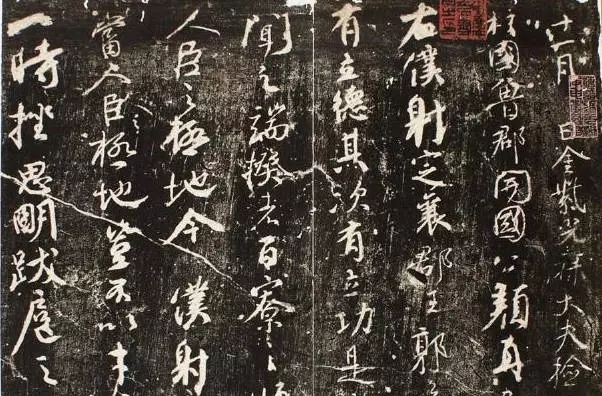 十一月 日金紫光祿大夫檢
柱國魯郡開國公顏真
右僕射定襄郡王郭
有立德其次有立功是
聞之端揆者百寮之師
人臣之極地今僕射
當人臣極地豈不以才
一時挫思明跋扈之